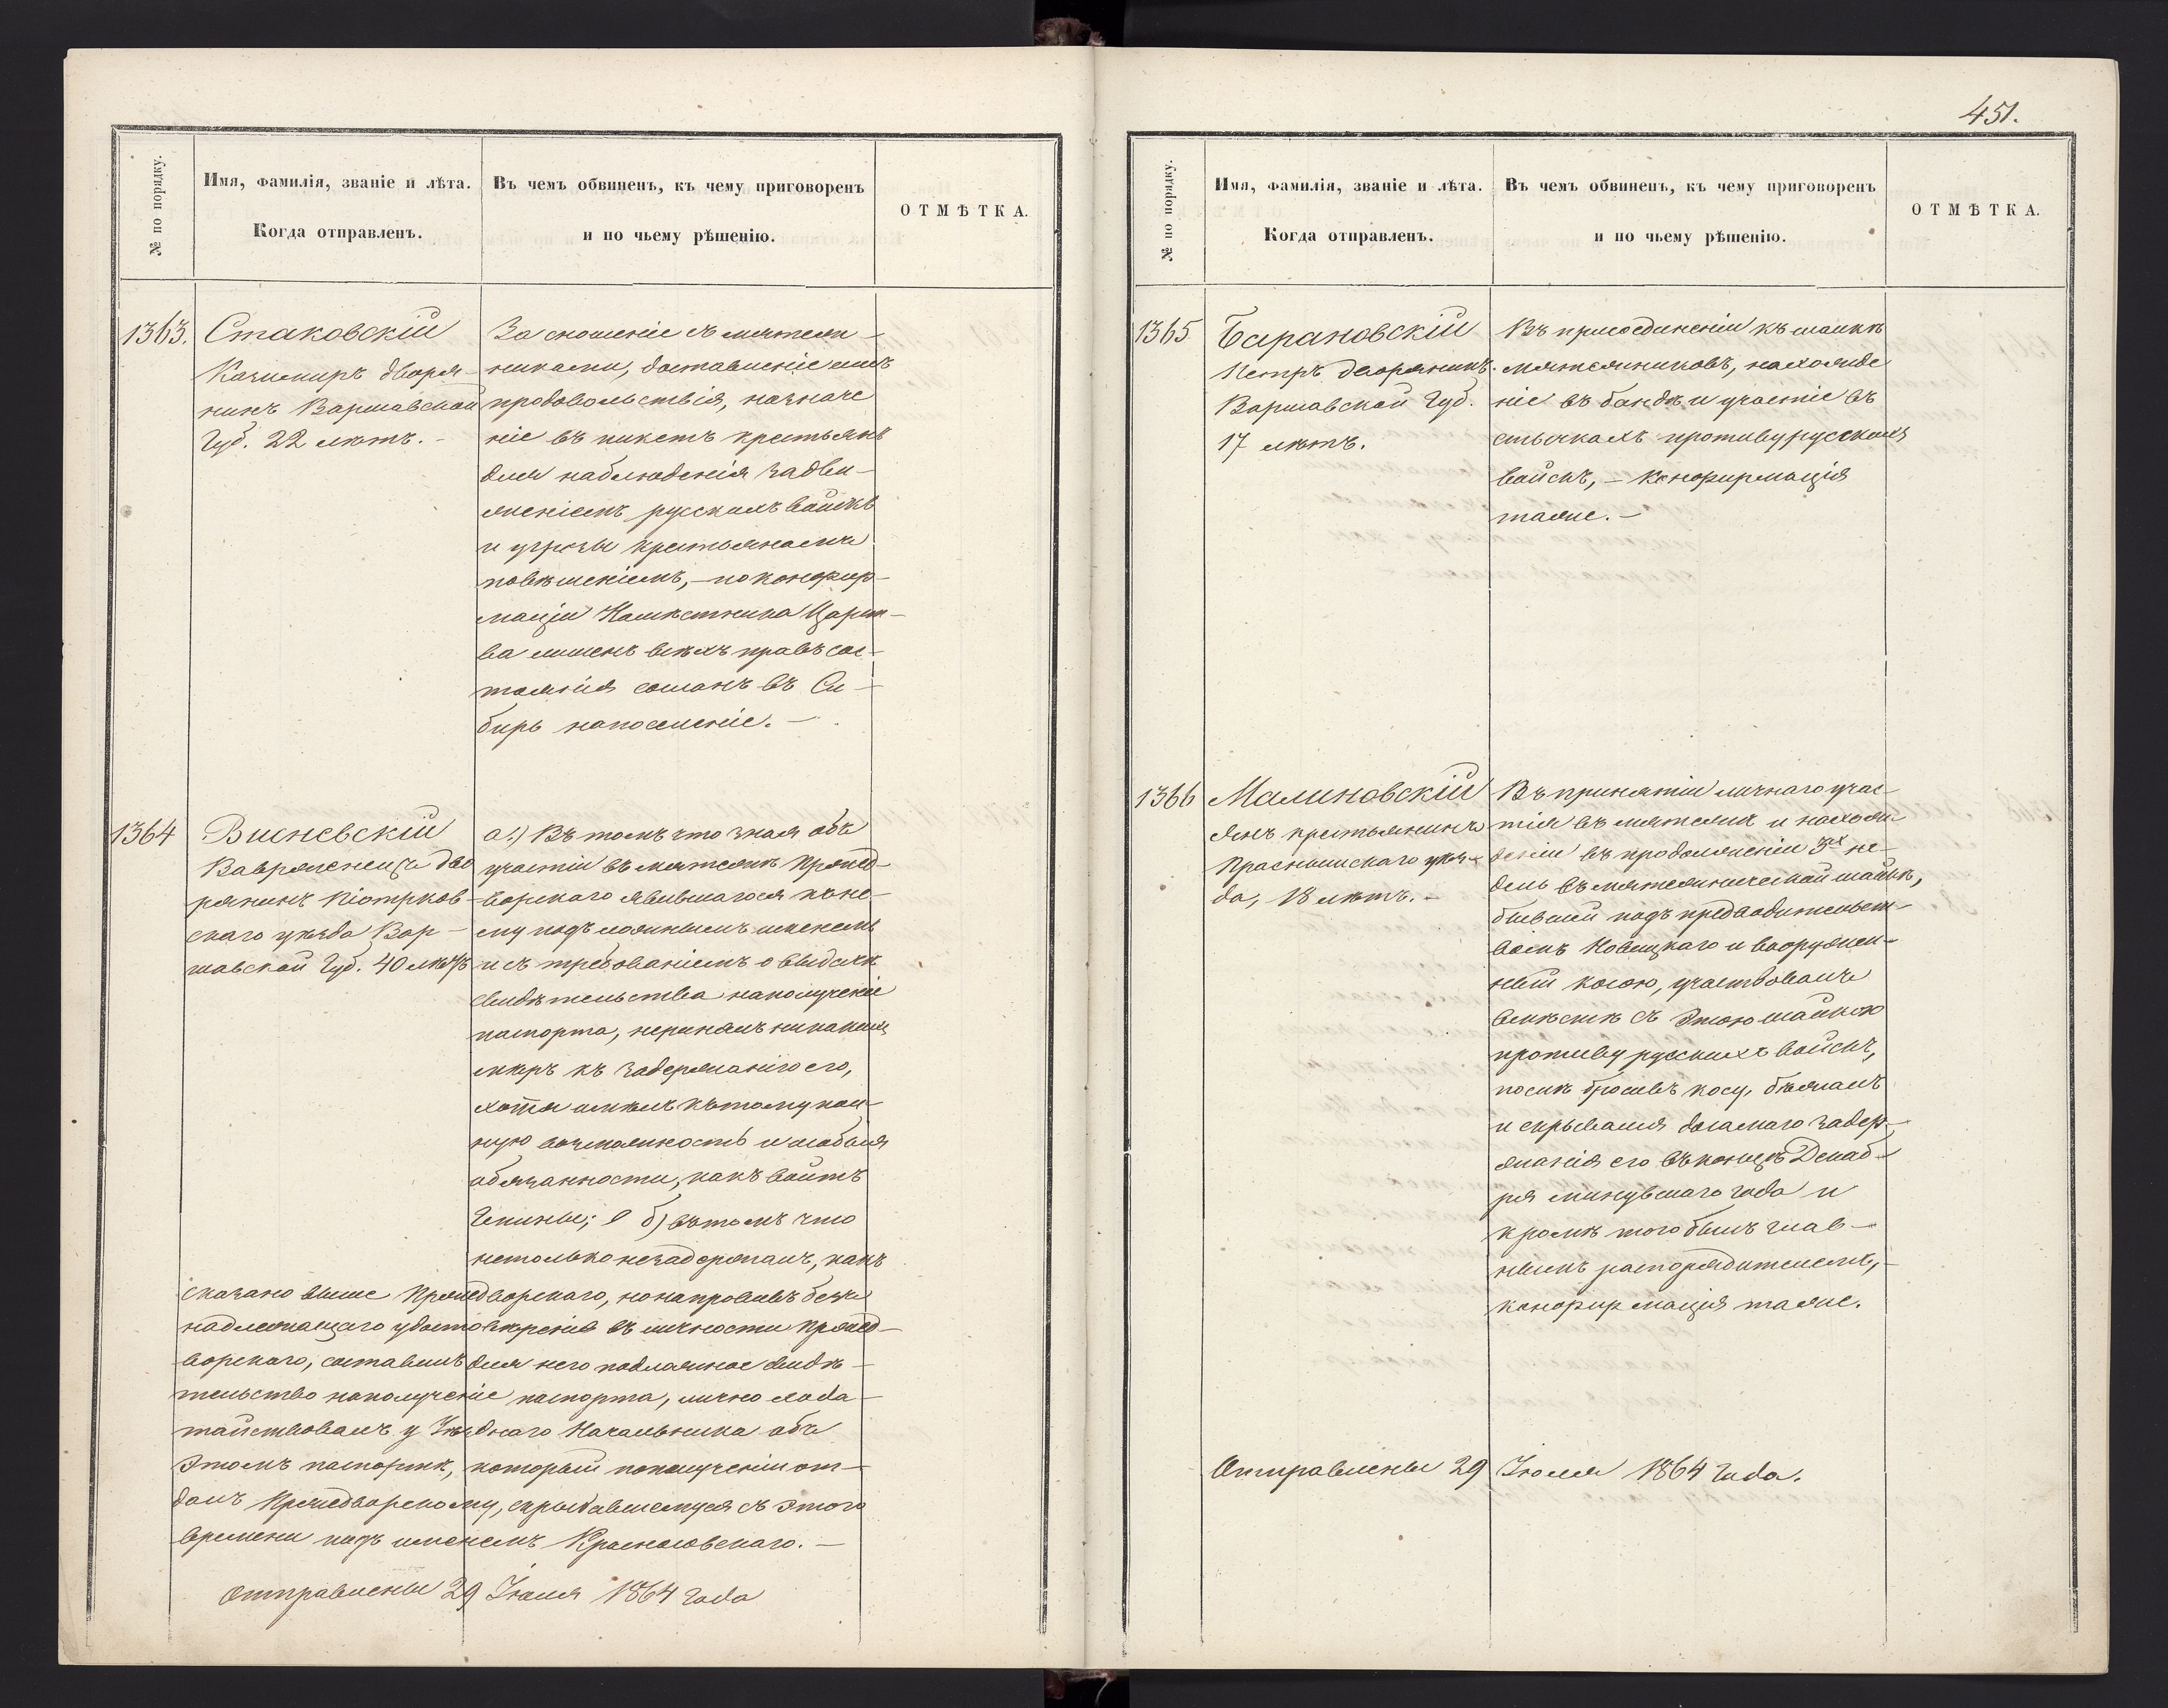 № по порядку.
Имя, фамилія, званіе и лѣта.
Когда отправленъ.
Въ чемъ обвиненъ, къ чему приговоренъ
и по чьему рѣшенію.
ОТМѢТКА.
1363.
Стаковскій
Казимиръ дворя-
нинъ Варшавской
Губ. 22 лѣтъ. -
За сношеніе съ мятеж-
никами, доставленіе имъ
продовольствія, назначе
ніе въ пикетъ крестьянъ
для наблюденія за дви-
женіемъ русскихъ войскъ
и угрозы крестьянамъ
повѣшеніемъ, - по конфир-
маціи Намѣстника Царст-
ва лишенъ всѣхъ правъ сос-
тоянія сосланъ въ Си-
бирь на поселеніе. -
1364
Висневскій
Ваврженецъ дво
рянинъ Піотрков-
скаго уѣзда Вар-
шавской Губ. 40 лѣтъ
а.) Въ томъ что зная объ
участіи въ мятежѣ Пржед-
ворскаго явившагося к нe-
му подъ ложнымъ именемъ
и съ требованіемъ о выдачѣ
свидѣтельства на полученіе
паспорта, непринялъ никакихъ
мѣръ къ задержанію его,
хотя имѣлъ къ тому пол-
ную возможность и особыя
обязанности, какъ войтъ
Гмины; б) въ томъ что
нетолько незадержалъ, какъ
сказано выше Пржедворскаго, но направивъ безъ
надлежащаго удостовѣренія въ личности Пржед-
ворскаго, составилъ для него подложное свидѣ-
тельство на полученіе паспорта, лично хода-
тайствовалъ у Уѣзднаго Начальника объ
этомъ паспортѣ, который по полученіи от-
далъ Пржедворскому, скрывавшемуся съ этого
времени подъ именемъ Красносовскаго. -
Отправлены 29 Іюля 1864 года
451.
№ по порядку.
Имя, фамилія, званіе и лѣта.
Когда отправленъ.
Въ чемъ обвиненъ, къ чему приговоренъ
и по чьему рѣшенію.
ОТМѢТКА.
1365
Барановскій
Петръ дворянинъ.
Варшавской Губ.
17 лѣтъ.
Въ присоединеніи къ шайкѣ
мятежниковъ, нахожде
ніе въ бандѣ и участіе въ
стычкахъ противу русскихъ
войскъ, - Конфирмація
таже. -
1366
Малиновскій
Янъ крестьянинъ
Праснышскаго уѣз-
да, 18 лѣтъ. -
Въ принятіи личнаго учас-
тія въ мятежѣ и нахож
деніи въ продолженіи 3хъ не-
дель въ мятежнической шайкѣ,
бывшей подъ предводительст-
вомъ Новицкаго и вооружен-
ный косою, участвовалъ
вмѣстѣ съ этою шайкою
противу русскихъ войскъ,
послѣ бросивъ косу, бѣжалъ
и скрывался до самаго задер-
жанія его въ концѣ Декаб-
ря минувшаго года и
кромѣ того былъ глав-
нымъ распорядителемъ, -
конфирмація таже.
Отправлены 29 Іюля 1864 года.